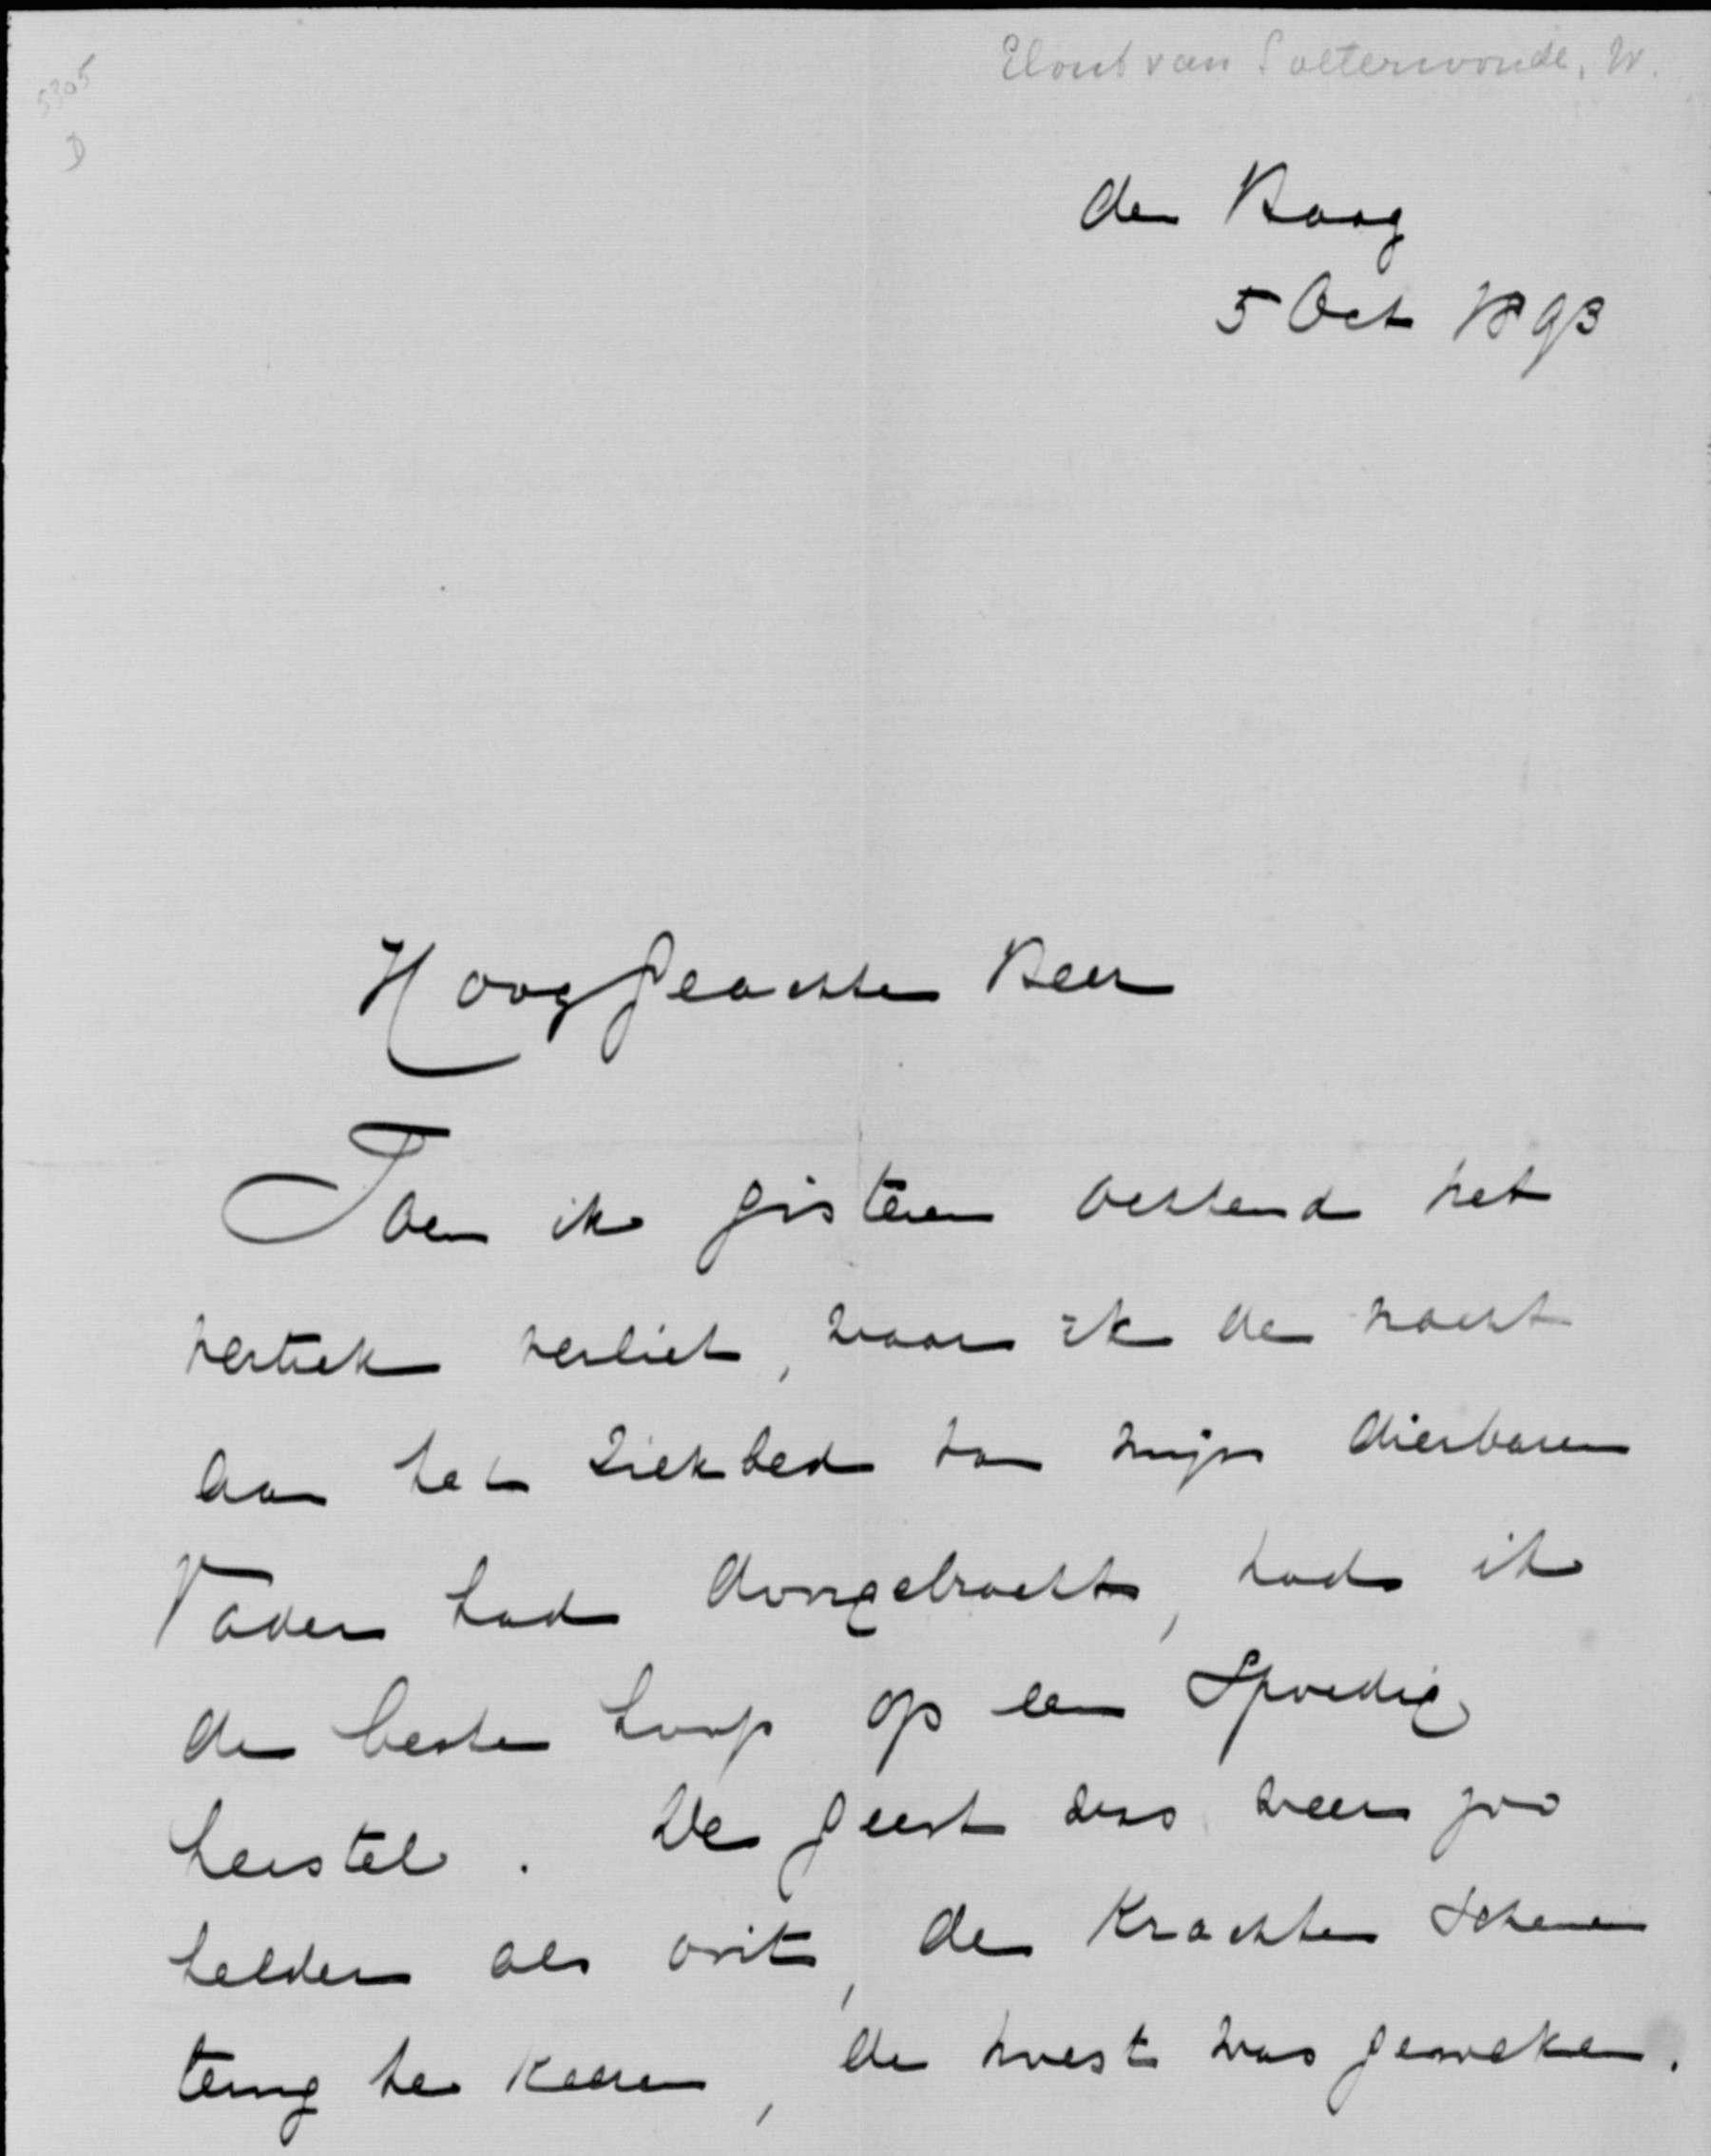 5305
D
Elout van Soeterwoude, W.
den Haag
5 Oct 1893
Hoog Geachte Heer
Toen ik gisteren ochtend het
vertrek verliet, waar ik de nacht
aan het ziekbed van mijn dierbaren
Vader had doorgebracht, had ik
de beste hoop op een spoedig
herstel. De geest was weer zoo
helder als ooit, de krachten schenen
terug te keeren, de koorts was geweken.